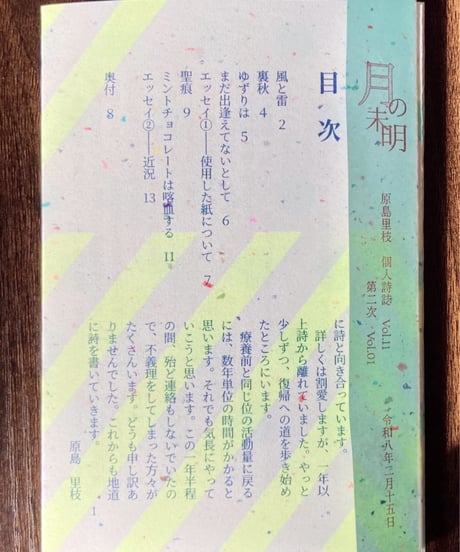 月の未明
原島里枝 個人詩誌 Vol.11
第二次 Vol.01
令和八年二月十五日
目次
風と雷 2
裏秋 4
ゆずりは 5
まだ出逢えてないとして 6
エッセイ①――使用した紙について 7
聖痕 9
ミントチョコレートは喀血する 11
エッセイ②――近況 13
奥付 8
に詩と向き合っています。
詳しくは割愛しますが、一年以
上詩から離れていました。やっと
少しずつ、復帰への道を歩き始め
たところにいます。
療養前と同じ位の活動量に戻る
には、数年単位の時間がかかると
思います。それでも気長にやって
いこうと思います。この一年半程
の間、殆ど連絡もしないでいたの
で、不義理をしてしまった方々が
たくさんいます。どうも申し訳あ
りませんでした。これからも地道
に詩を書いていきます。
原島 里枝
1